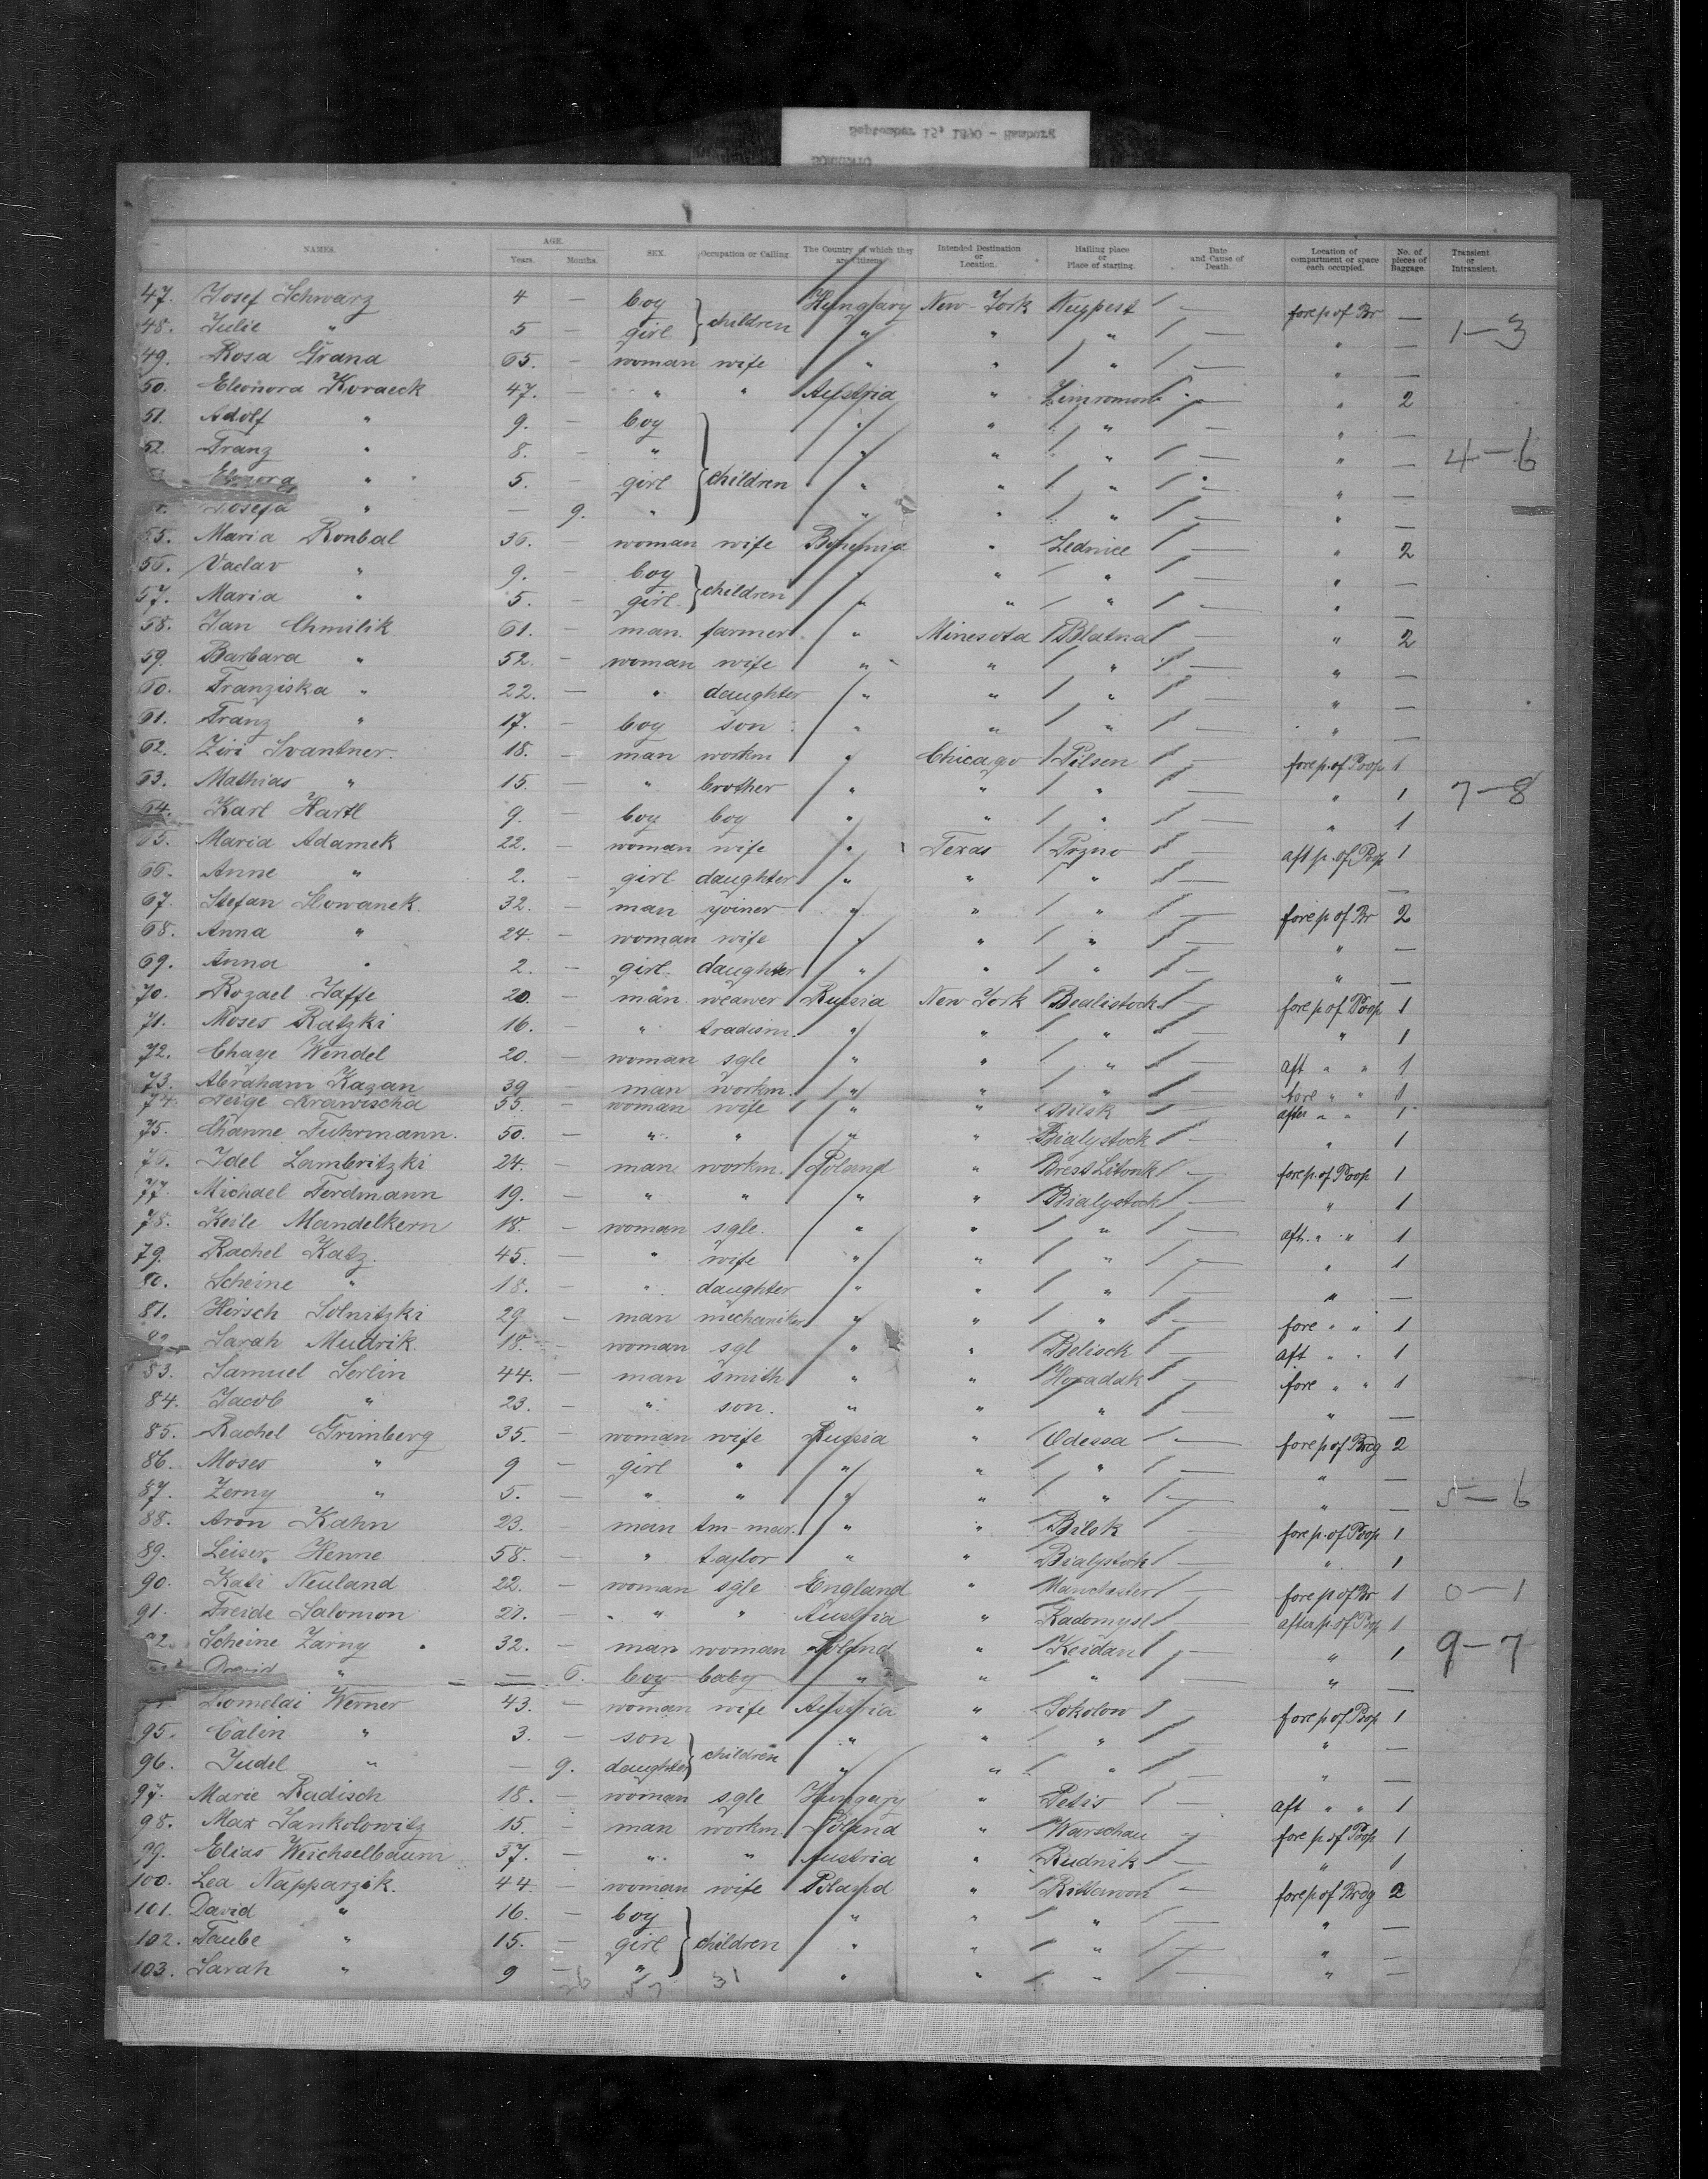 September 15, 1890 - Hamburg
NAMES. AGE. Years. Months. SEX. Occupation or Calling. The Country of which they are Citizens. Intended Destination or Location. Hailing place or Place of starting. Date and Cause of Death. Location of compartment or space each occupied. No. of pieces of Baggage. Transient or Intransient.
47. Josef Schwarz 4 — boy children Hungary New-York — fore p. of Br —
48. Julie " 5 — girl " " " — " — 1—3
49. Rosa Grana 65. — woman wife " " " — " —
50. Eleonora Kvraeck 47. — " " Austria " — " 2
51. Adolf " 9. — boy children " " " — " —
52. Franz " 8. — " " " " — " — 4—6
Elenora " 5. — girl " " " — " —
Josefa " — 9. " " " " — " —
55. Maria Ronbal 36. — woman wife Bohemia " Lednice — " 2
56. Vaclav " 9. — boy children " " " — " —
57. Maria " 5. — girl " " " — " —
58. Jan Chmilik 61. — man farmer " Minesota Blatna — " 2
59. Barbara " 52. — woman wife " " " — " —
60. Franziska " 22. — " daughter " " " — " —
61. Franz " 17. — boy son " " " — " —
62. Ziri Svantner 18. — man workm " Chicago Pilsen — fore p. of Poop 1
63. Mathias " 15. — " brother " " " — " 1 7—8
64. Karl Hartl 9. — boy boy " " " — " 1
65. Maria Adamek 22. — woman wife " Texas — aft p. of Poop 1
66. Anne " 2. — girl daughter " " " — —
67. Stefan Slowanek 32. — man joiner " " " — fore p. of Br 2
68. Anna " 24. — woman wife " " " — " —
69. Anna " 2. — girl daughter " " " — " —
70. Rozael Jaffe 20. — man weawer Russia New York Bealistock — fore p. of Poop 1
71. Moses Ratzki 16. — " tradism. " " " — " 1
72. Chaye Wendel 20. — woman sgle " " " — aft " " 1
73. Abraham Kazan 39 — man workm. " " " — fore " " 1
74. Krawischa 55. — woman wife " " — after " " 1
75. Channe Fuhrmann. 50. — " " " " Bialystock — " 1
76. Idel Lambritzki 24. — man workm. Poland " Brest Litowk — fore p. of Poop 1
77. Michael Ferdmann 19. — " " " " Bialystock — " 1
78. Keile Mandelkern 18. — woman sgle. " " " — aft. " " 1
79. Rachel Katz. 45. — " wife " " " — " 1
80. Scheine " 18. — " daughter " " " — " —
81. Hirsch Solnitzki 29 — man mechaniker " " " — fore " " 1
82. Sarah Mudrik. 18. — woman sgl " " Belisck — aft " " 1
83. Samuel Serlin 44. — man smith " " Horadak — fore " " 1
84. Jacob " 23. — " son. " " " — " —
85. Rachel Grimberg 35. — woman wife Russia " Odessa — fore p of Brdg 2
86. Moses " 9 — girl " " " " — " —
87. Zerny " 5. — " " " " " — " — 5—6
88. Aron Kahn 23. — man tm-mar. " " Bilsk — fore p. of Poop 1
89. Leiser Henne 58. — " taylor " " Bialystock — " 1
90. Kati Neuland 22. — woman sgle England " Manchester — fore p of Br 1 0—1
91. Freide Salomon 21. — " " Austria " Radomysl — after p. of Poop 1
92. Scheine Zarny 32. — man woman Poland " Keidan — " 1 9—7
David " — 6. boy baby " " " — " —
Werner 43. — woman wife Austria " Sokolow fore p of Poop 1
95. Calin " 3. — son children " " " — " —
96. Judel " — 9. daughter " " " — " —
97. Marie Radisch 18. — woman sgle Hungary " — aft " " 1
98. Max Jankolowitz 15. — man workm Poland " Warschau fore p of Poop 1
99. Elias Weichselbaum 37. — " " Austria " Rudnik — " 1
100. Lea Napparzik. 44 — woman wife Poland " — fore p of Brdg 2
101. David " 16. — boy children " " " — " —
102. Taube " 15. — girl " " " — " —
103. Sarah " 9 — " " " " — " —
57 31